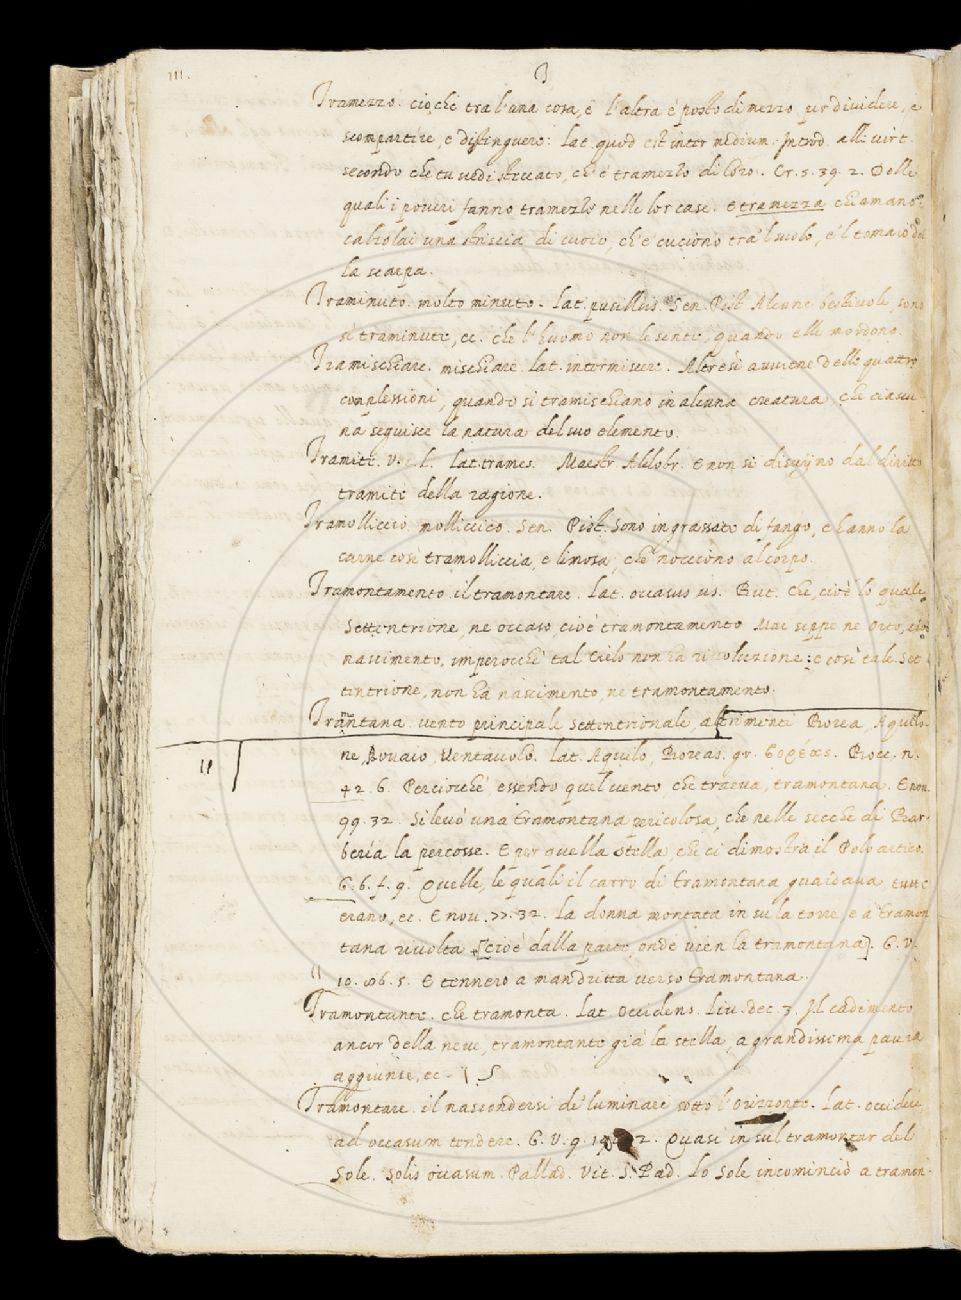 111.
T
Tramezzo. ciò che tra l'una cosa, e l'altra è posto di mezzo per dividere, e
scompartire, e distinguere: lat. quod est inter medium. Introd. alle virt.
secondo che tu vedi steccato, ch' è tramezzo di loro. Cr. 5. 39. 2. Delle
quali i poveri fanno tramezzo nelle lor case. e tramezza chiamano i
calzolai una striscia di cuoio, ch' e' cuciono tra 'l suolo, e 'l tomaio del
la scarpa.
Traminuto. molto minuto. Lat. pusillus. Sen. Pist. Alcune bestiuole, sono
sì traminute, ec. che l'huomo non le sente, quando elle mordono.
Tramischiare. mischiare. lat. intermiscere. Altresì avviene delle quattro
complessioni, quando si tramischiano in alcuna creatura che ciascu
na seguisce la natura del suo elemento.
Tramite. V. L. Lat. trames. Maestr. Aldobr. e non si disgijno dal diritto
tramite della ragione.
Tramolliccio. molliccico. Sen. Pist. Sono ingrassate di fango, e hanno la
carne così tramolliccia, e limosa, che nocciono al corpo.
Tramontamento. il tramontare. Lat. occasus us. But. Che, cioè lo quale
Settentrione, ne occaso, cioè tramontamento Mai seppe ne Orto, cioè
nascimento, imperocchè tal Cielo non ha rivoluzione: e così tale Set
tentrione, non ha nascimento ne tramontamento.
Tramontana. vento principale Settentrionale, altrimenti Borea, Aquilo-
ne, Rovaio, Ventavolo. Lat. Aquilo, Boreas. gr. βορέας. Bocc. n.
42. 6. Perciocchè essendo quel vento, che traeva, tramontana. E nov.
99. 32. Si levò una tramontana pericolosa, che nelle secche di Bar-
beria la percosse. E per quella stella, che ci dimostra il Polo artico.
G. 6. f. 9. Quelle, le quali il carro di tramontana guardava, tutte
erano, ec. E nov. 77. 32. La donna montata in su la torre, e a tramon
tana rivolta [cioè dalla parte, onde vien la tramontana]. G. V.
10. 86. 5. E tennero a mandritta verso tramontana.
Tramontante. che tramonta. Lat. Occidens. Liv. dec. 3. Il cadimento
ancor della neve, tramontante già la stella, a grandissima paura
aggiunse, ec.
Tramontare. il nascondersi de' luminari sotto l'Orizzonte. Lat. occidere
ad occasum tendere. G. V. 9. 2. Quasi in sul tramontar del
Sole. Solis occasum. Pallad. Vit. S. Pad. Lo Sole incominciò a tramon-